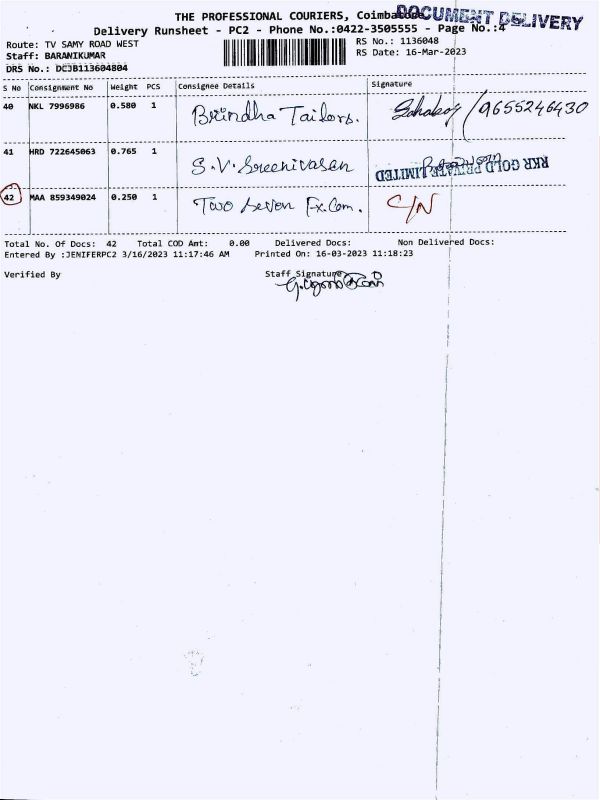 THE PROFESSIONAL COURIERS, Coimbatore
DOCUMENT DELIVERY
Delivery Runsheet - PC2 - Phone No.:0422-3505555 - Page No.:4
Route: TV SAMY ROAD WEST
RS No.: 1136048
Staff: BARANIKUMAR
RS Date: 16-Mar-2023
DRS No.: DCJB113604804
S No Consignment No Weight PCS Consignee Details Signature
40 NKL 7996986 0.580 1 Brindha Tailors. 9655246430
41 HRD 722645063 0.765 1 S.V. Sreenivasan RKR GOLD PRIVATE LIMITED
42 MAA 859349024 0.250 1 Two Seven Fx.Com. C/N
Total No. Of Docs: 42 Total COD Amt: 0.00 Delivered Docs: Non Delivered Docs:
Entered By :JENIFERPC2 3/16/2023 11:17:46 AM Printed On: 16-03-2023 11:18:23
Verified By Staff Signature